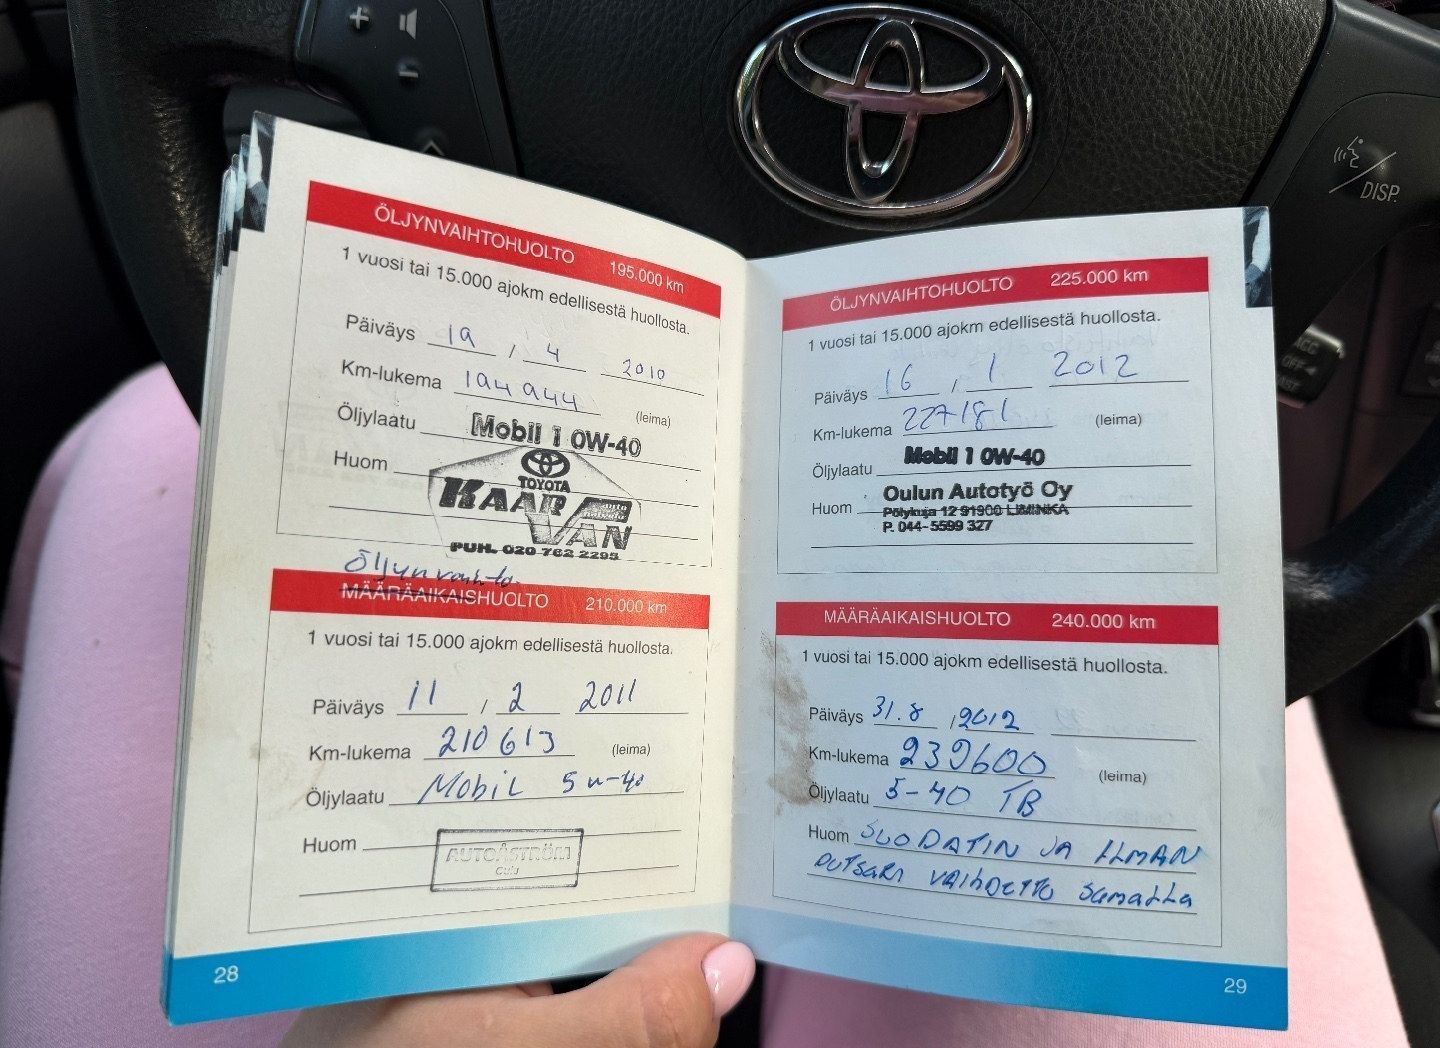 DISP.
ACC
OFF
ÖLJYNVAIHTOHUOLTO 195.000 km
1 vuosi tai 15.000 ajokm edellisestä huollosta.
Päiväys 19 / 4 2010
Km-lukema 194944
(leima)
Öljylaatu Mobil 1 0W-40
Huom
TOYOTA
KAARVAN
PUH. 020 762 2295
Öljynvaihto
MÄÄRÄAIKAISHUOLTO 210.000 km
1 vuosi tai 15.000 ajokm edellisestä huollosta.
Päiväys 11 / 2 2011
Km-lukema 210613 (leima)
Öljylaatu Mobil 5w-40
Huom
AUTOÅSTRÖM
Oulu
28
ÖLJYNVAIHTOHUOLTO 225.000 km
1 vuosi tai 15.000 ajokm edellisestä huollosta.
Päiväys 16 / 1 2012
Km-lukema 227181 (leima)
Öljylaatu Mobil 1 0W-40
Huom Oulun Autotyö Oy
Pölykuja 12 91900 LIMINKA
P. 044-5599 327
MÄÄRÄAIKAISHUOLTO 240.000 km
1 vuosi tai 15.000 ajokm edellisestä huollosta.
Päiväys 31.8 / 2012
Km-lukema 239600 (leima)
Öljylaatu 5-40 TB
Huom SUODATIN JA ILMAN
VAIHDETTO SAMALLA
29